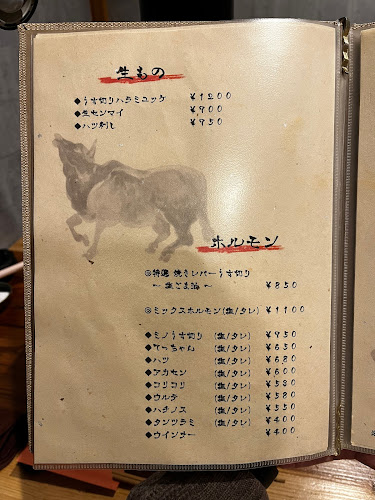 生もの
◆うす切りハラミユッケ ￥1200
◆生センマイ ￥900
◆ハツ刺し ￥950
ホルモン
◎特選 焼きレバーうす切り
～ 塩ごま油 ～ ￥850
◎ミックスホルモン(塩/タレ) ￥1100
◆ミノうす切り (塩/タレ) ￥950
◆てっちゃん (塩/タレ) ￥650
◆ハツ (塩/タレ) ￥680
◆アカセン (塩/タレ) ￥600
◆コリコリ (塩/タレ) ￥580
◆ウルテ (塩/タレ) ￥580
◆ハチノス (塩/タレ) ￥550
◆タンツラミ (塩/タレ) ￥400
◆ウインナー ￥400